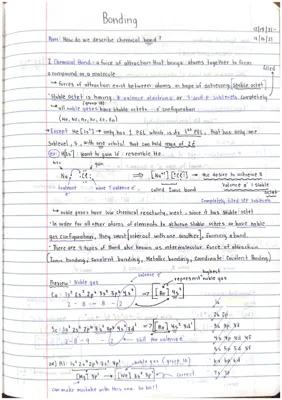 Bonding
Aim: How do we describe chemical bond?
I. Chemical Bond: a force of attraction that brings atoms together to form
a compound or a molecule
filled
↳ forces of attraction exist between atoms in hope of achieving stable octet
• Stable octet is having 8 valence electrons or s and p sublevels completely
(group 18)
↳ all noble gases have stable octets - e⁻ configuration
(Ne, Ar, Kr, Xe, Rn)
* Except He [1s²] → only has 1 PEL which is its 1st PEL, that has only one
sublevel, s, with one orbital that can hold max of 2e⁻
ex: H[1s¹] : want to gain 1e⁻ resemble He
gain
Na · Cl: ⇒ [Na⁺] [:Cl:]⁻ → the desire to achieve 8
1 valence have 7 valence e⁻ called ionic bond valence e⁻ : stable
octet
completely filled s&p sublevels
↳ noble gases have low chemical reactivity, inert - since it has stable octet
• In order for all other atoms of elements to achieve stable octets or have noble
gas configurations, they must interact with one another, forming a bond.
• There are 4 types of bond also known as intermolecular force of attraction
(Ionic bonding, Covalent bonding, Metallic bonding, Coordinate Covalent Bonding)
Review: Noble gas
valence e⁻
highest
represent noble gas
Ca - 1s² 2s² 2p⁶ 3s² 3p⁶ 4s² ⇒ [Ar] 4s²
2 - 8 - 8 - 2
Sc - 1s² 2s² 2p⁶ 3s² 3p⁶ 4s² 3d¹ ⇒ [Ar] 4s² 3d¹
2 - 8 - 9 - 2 → still the valence e⁻
1s
2s 2p
3s 3p 3d
4s 4p 4d 4f
5s 5p 5d 5f
6s 6p 6d
7s 7p
noble gas (group 18)
[Ne] 3s² 3p¹ → correct
can make mistake with this one. So be!!